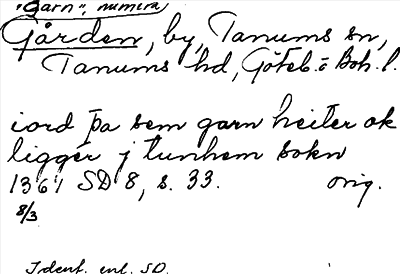 "Garn", numera
Gården, by, Tanums sn,
Tanums hd, Göteb. o Boh. l.
iord þa sem garn heiter ok
ligger j tunhem sokn
1361 SD 8, s. 33. orig.
8/3
Ident. enl. SD.